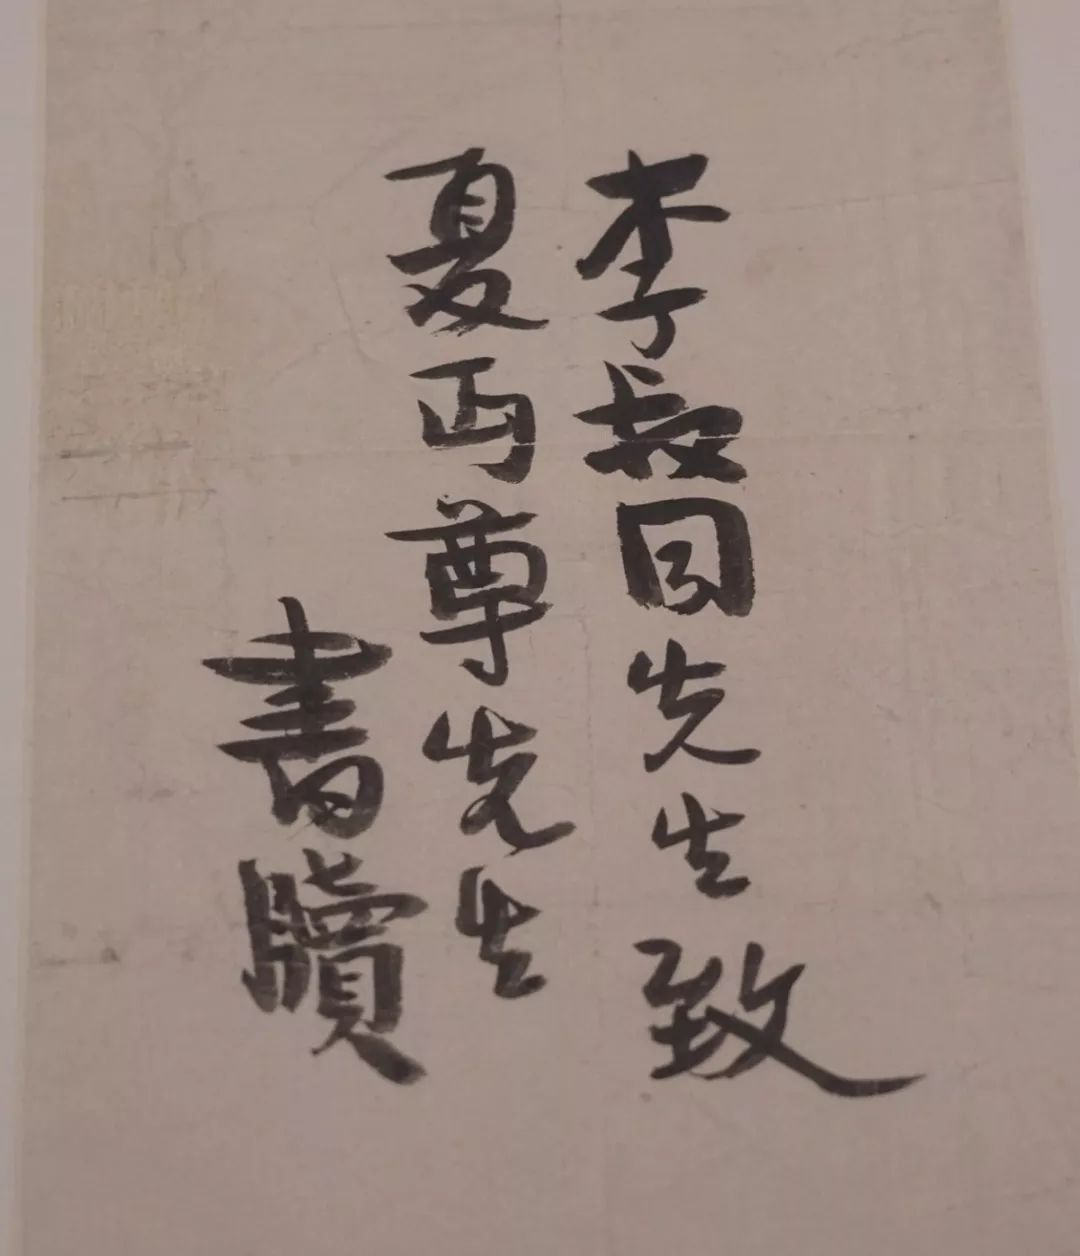 李叔同先生致
夏丏尊先生
書牘